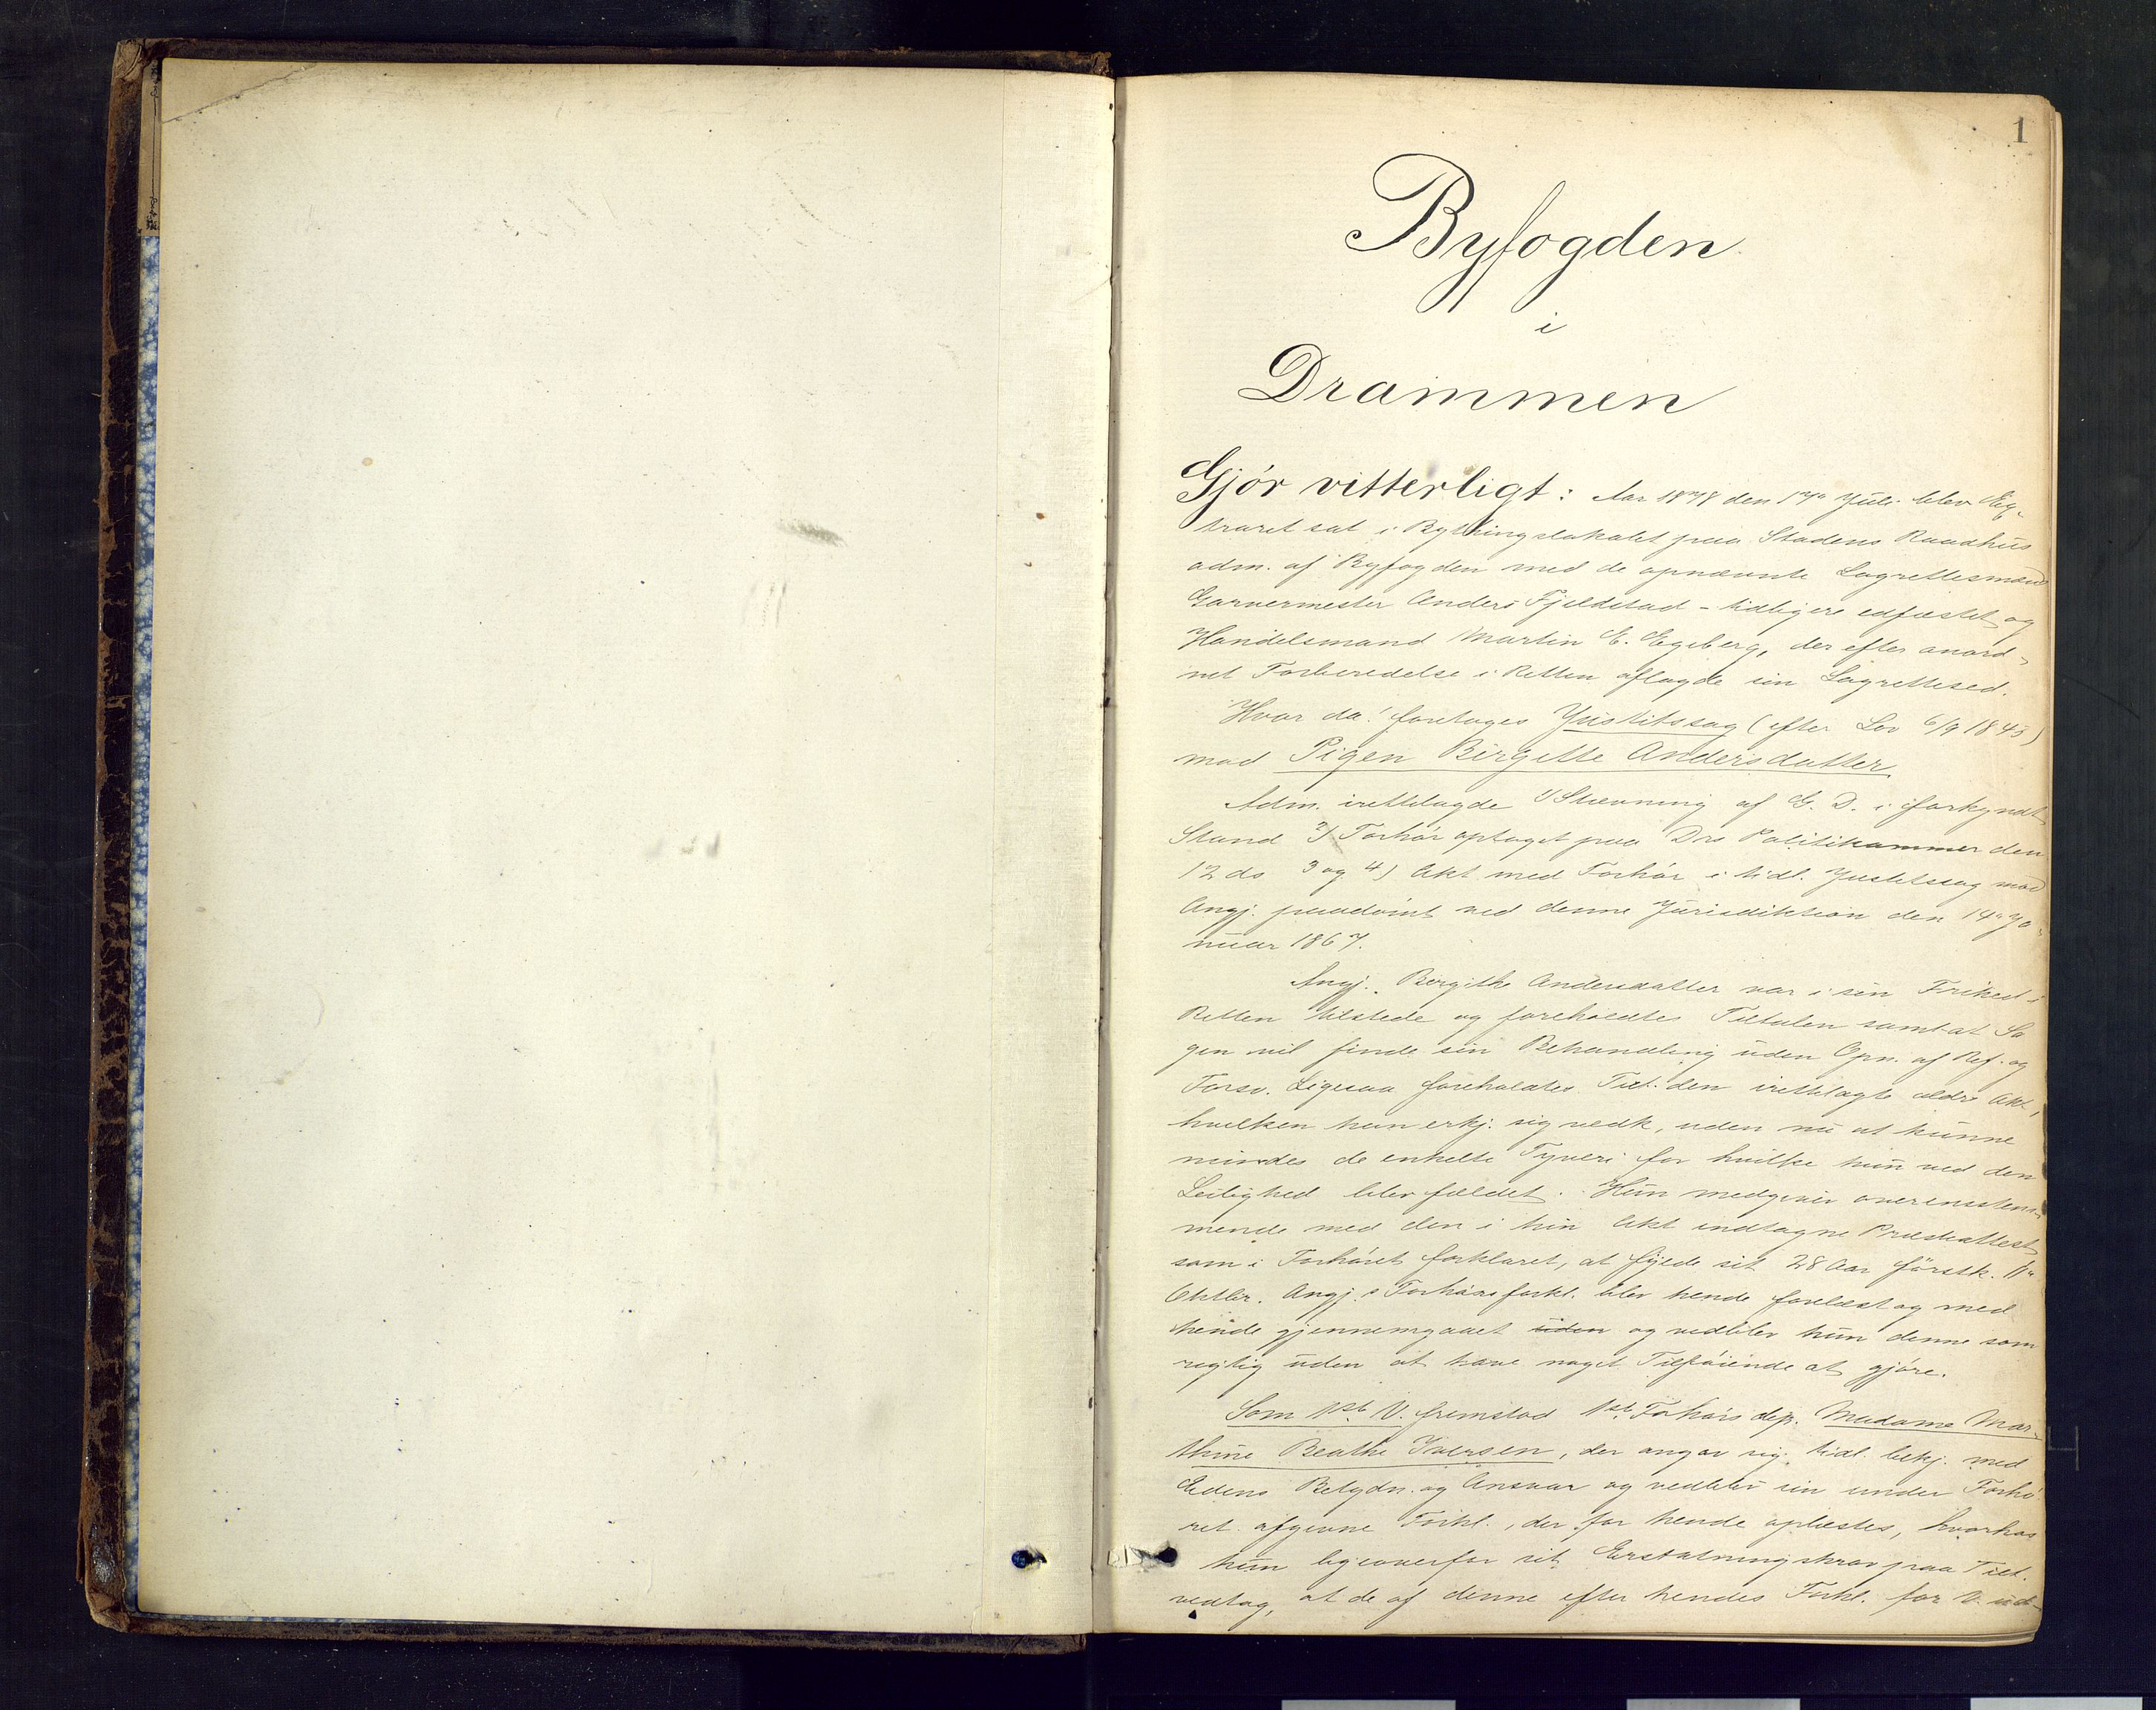 1
Byfogden
i
Drammen
Gjör vitterligt: Aar 1878 den 17de Juli blev Eg-
traret sat i Bythingslokalet paa Stadens Raadhus
adm. af Byfogden med de opnævnte Lagrettesmænd
Garvermester Anders Fjeldstad - tidligere edfæstet og
Handelsmand Martin E. Egeberg, der efter anord-
net Forberedelse i Retten aflagde sin Lagretteed.
Hvor da! foretoges Justitssag (efter Lov 6/9 1845)
mod Pigen Birgitte Andersdatter.
Adm. irettelagde 1) Stævning af G. D. i forkyndt
Stand 2) Forhör optaget paa Drs Politikammer den
12 ds 3 og 4) Akt med Forhör i tidl. Justitssag mod
Angj. paadömt ved denne Jurisdiktion den 14de Ja-
nuar 1867.
Angj. Birgithe Andersdatter var i sin Frihed i
Retten tilstede og foreholdtes Tiltalen samt at Sa
gen vil finde sin Behandling uden Opn. af Ref. og
Forsv. Ligesaa foreholdtes Tilt. den irettelagte ældre Akt,
hvilken hun erkj. sig vedk, uden nu at kunne
mindes de enkelte Tyveri for hvilke hun ved den
Leilighed blev fældet. Hun medgiver overensstem-
mende med den i hin Akt indtagne Præsteattest
som i Forhöret forklaret, at fylde sit 28 Aar förstk. 11te
Oktbr. Angj.s Forhörsforkl. blev hende forelæst og med
hende gjennemgaaet uden og vedblev hun denne som
rigtig uden at have noget Tilföiende at gjöre.
Som 1ste V. fremstod 1ste Forhörs dep. Madame Mar-
thine Beathe Iversen, der angav sig tidl. bekj. med
Edens Betydn. og Ansvar og vedblev sin under Forhö
ret afgivne Forkl., der for hende oplæstes, hvorhos
hun ligeoverfor sit Erstatningskrav paa Tilt.
vedtog, at de af denne efter hendes Forkl. for V. ud-